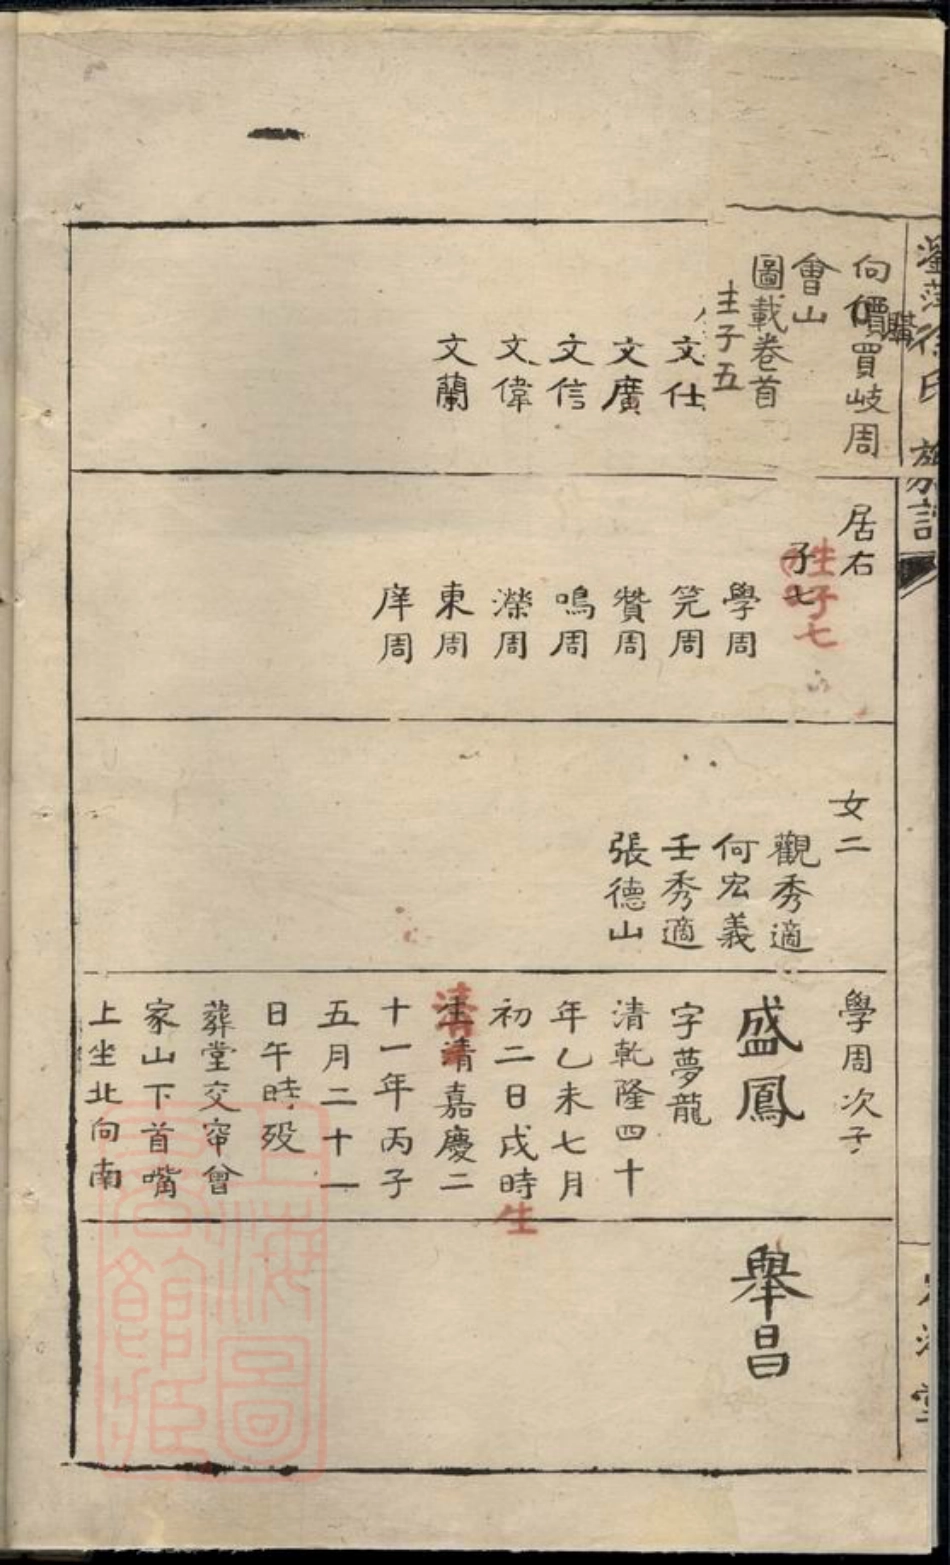 瀏萍徐氏族譜
向價買岐周
購
會山
圖載卷首
生子五
文仕
文廣
文信
文偉
文蘭
居右
子七
生子七
學周
完周
贊周
鳴周
濚周
東周
庠周
女二
觀秀適
何宏義
壬秀適
張德山
學周次子
盛鳳
字夢龍
清乾隆四十
年乙未七月
初二日戌時
生
生清嘉慶二
清
十一年丙子
五月二十一
日午時殁
葬堂交帘曾
家山下首嘴
上坐北向南
舉昌
堂
上海圖
書館藏